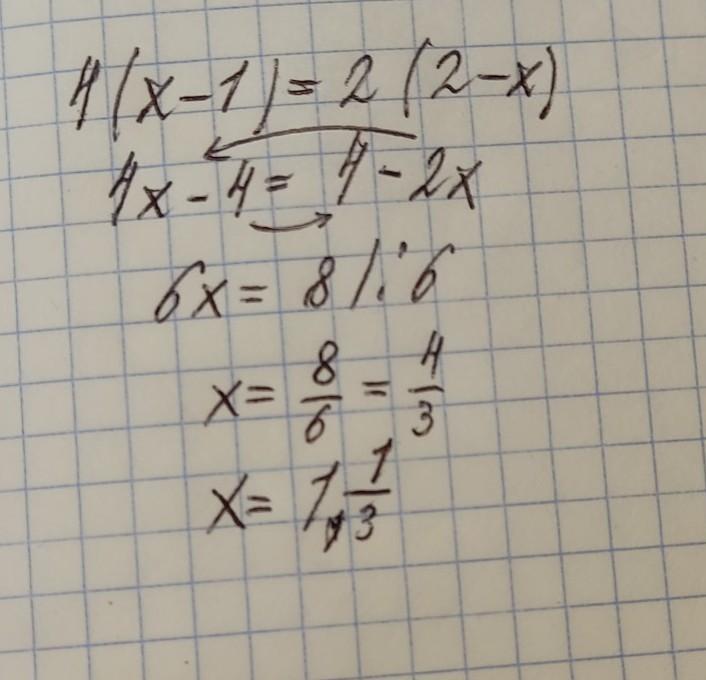 4(x-1)=2(2-x)
4x-4=4-2x
6x=8/:6
x=8/6=4/3
x=1 1/3